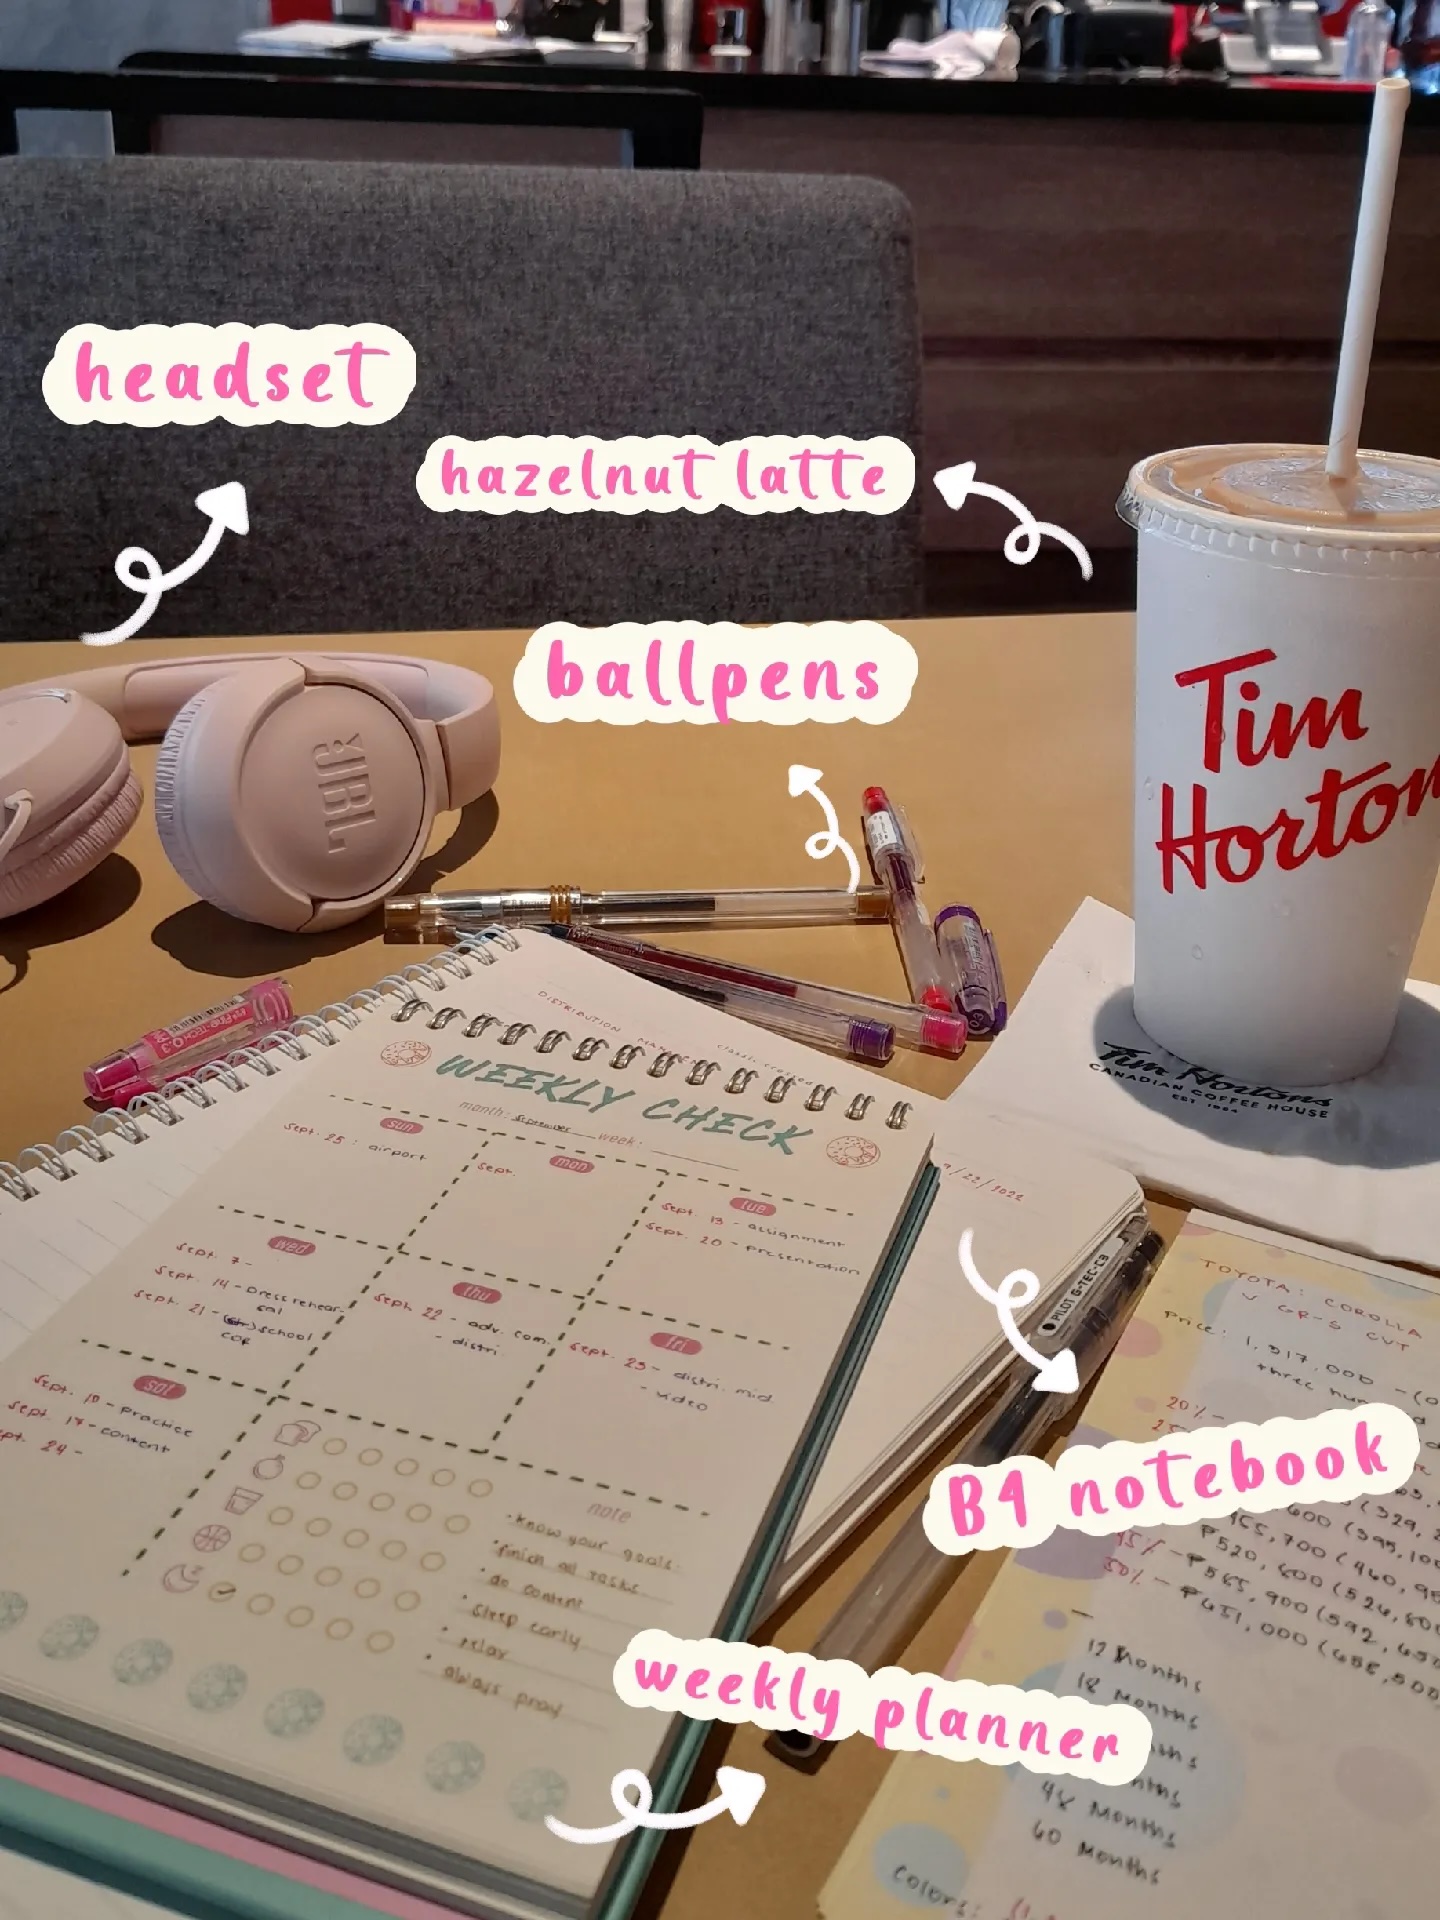 headset
hazelnut latte
ballpens
Tim
Horton
JBL
Tim Hortons
CANADIAN COFFEE HOUSE
DISTRIBUTION
WEEKLY CHECK
month: September week:
sun
sept. 25 : airport
mon
sept.
tue
sept. 13 - assignment
sept. 20 - presentation
wed
sept. 7 -
sept. 14 - press rehear-
sal
sept. 21 - school
thu
sept. 22 - adv. com.
- distri.
fri
sept. 23 - distri. mid
- video
sat
sept. 10 - practice
sept. 17 - content
sept. 24 -
note
• know your goals
• finish all tasks
• do content
• sleep early
• relax
• always pray
PILOT G-TEC-C3
TOYOTA: COROLLA
V GR-S CVT
price: 1,317,000 -
three hun
20% -
B4 notebook
45% - ₱585,900
50% - ₱651,000
12 Months
18 Months
48 Months
60 Months
colors:
weekly planner